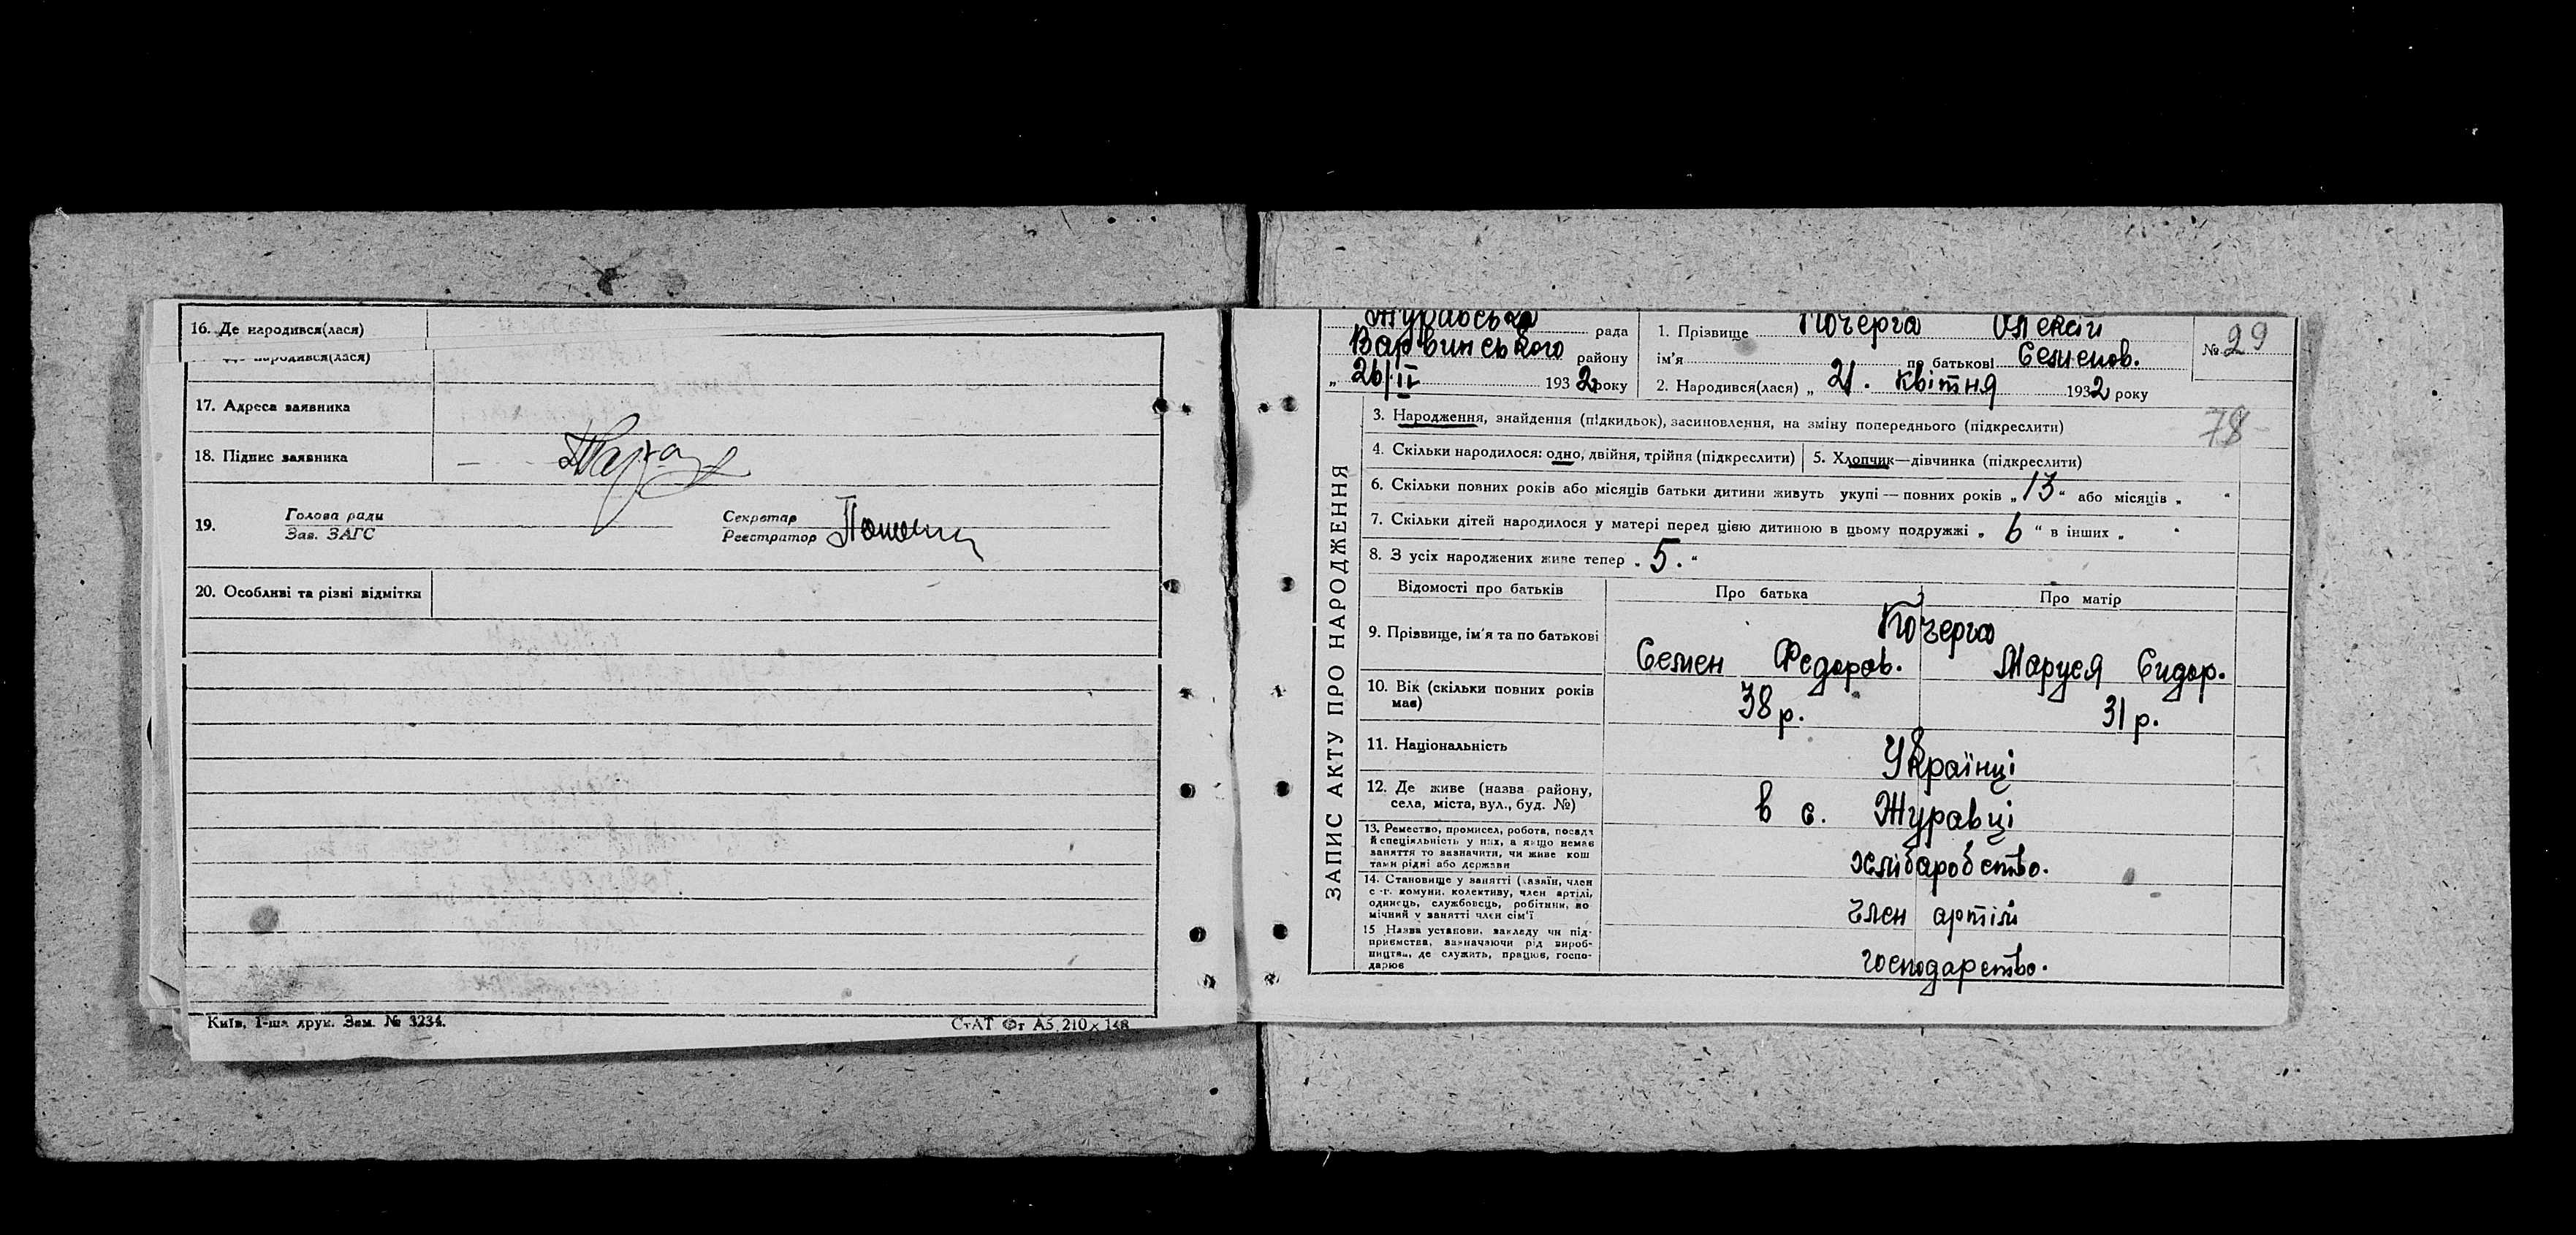 16. Де народився(лася)
народився(лася)
17. Адреса заявника
18. Підпис заявника
19. Голова ради
Зав. ЗАГС
Секретар
Реєстратор
20. Особливі та різні відмітки
Київ, 1-ша друк. Зам. № 3234.
СтАТ Фт А5 210 × 148
ЗАПИС АКТУ ПРО НАРОДЖЕННЯ
Журавська рада
Варвинського району
„ 26/IV 1932 року
1. Прізвище Кочерга Олексій
ім'я по батькові Семенов.
№ 29
2. Народився(лася) „ 21. квітня 1932 року
78
3. Народження, знайдення (підкидьок), засиновлення, на зміну попереднього (підкреслити)
4. Скільки народилося: одно, двійня, трійня (підкреслити)
5. Хлопчик—дівчинка (підкреслити)
6. Скільки повних років або місяців батьки дитини живуть укупі — повних років „13“ або місяців „ “
7. Скільки дітей народилося у матері перед цією дитиною в цьому подружжі „ 6 “ в інших „ “
8. З усіх народжених живе тепер „ 5. “
Відомості про батьків
Про батька
Про матір
9. Прізвище, ім'я та по батькові
Кочерга
Семен Федоров.
Маруся Сидор.
10. Вік (скільки повних років
має)
38 р.
31 р.
11. Національність
Українці
12. Де живе (назва району,
села, міста, вул., буд. №)
в с. Журавці
13. Ремество, промисел, робота, посада
й спеціяльність у них, а якщо немає
заняття то зазначити, чи живе кош
тами рідні або держави
хліборобство.
14. Становище у занятті (хазяїн, член
с.-г. комуни, колективу, член артілі,
одинець, службовець, робітник, по
мічний у занятті член сім'ї
Член артіли
15 Назва установи, закладу чи під-
приємства, зазначаючи рід вироб-
ництва, де служить, працює, госпо-
дарює
господарство.